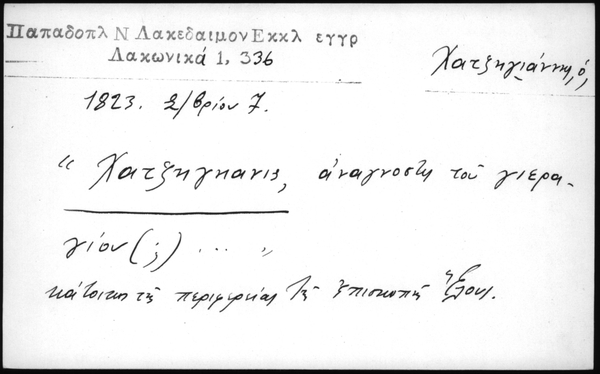 Παπαδοπλ Ν Λακεδαιμον Εκκλ εγγρ
Λακωνικά 1, 336
Χατζηγιάννη, ὁ,
1823. 2/βρίου 7.
“ Χατζηγηανις, ἀναγνοστη τοῦ γιερα-
γίου (;) ... „
κάτοικος τῆς περιφερείας τῆς Ἐπισκοπῆς Ἕλους.